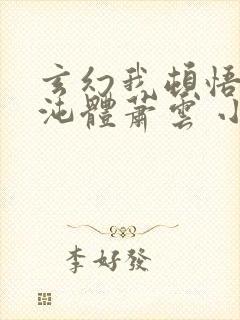 玄幻我頓悟
沌體蕭雲小
李好發